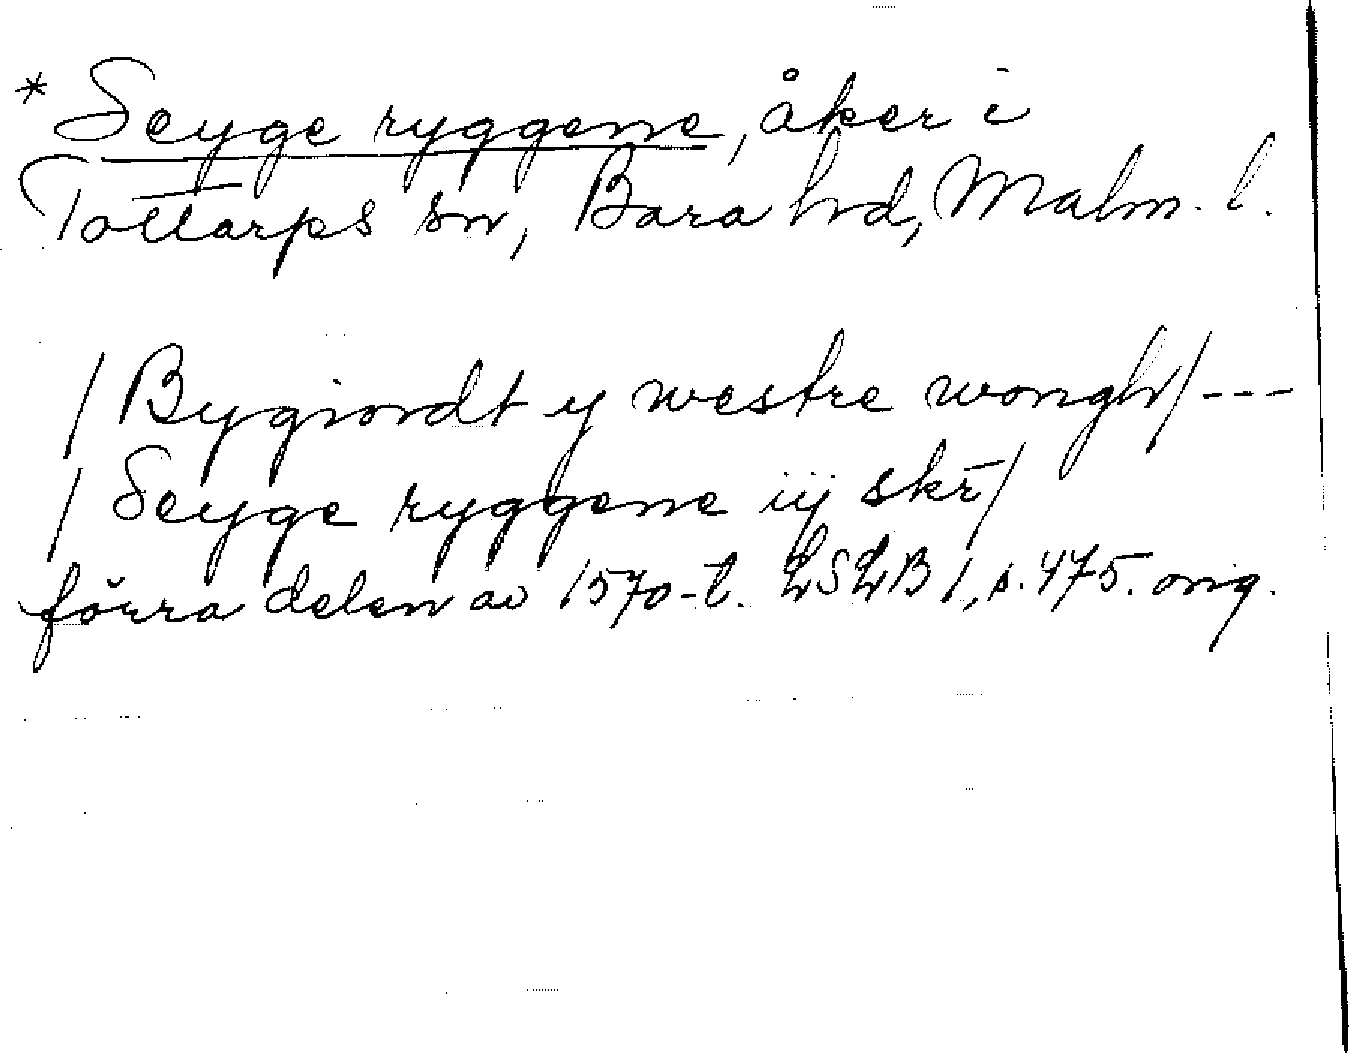 * Seyge ryggene, åker i
Tottarps sn, Bara hd, Malm. l.
/ Bygiordt y westre wongh/ ---
/ Seyge ryggene iij skr̄/
förra delen av 1570-t. LSLB 1, s. 475. orig.